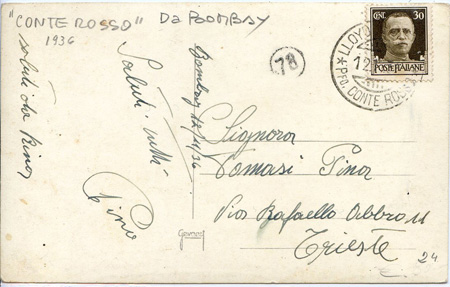 "CONTE ROSSO" Da BOMBAY
1936
saluti da Rino
Saluti
Pino
Bombay 12/11/36
78
CENT. 30
POSTE ITALIANE
LLOYD
12
PFO. CONTE ROSSO
Signora
Tomasi Pina
Via Rafaello Abbro 11
Trieste
24